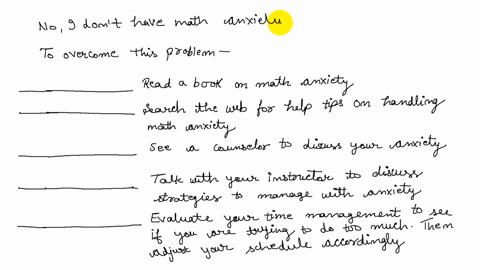 No, I don't have math anxiety
To overcome this problem —
Read a book on math anxiety
Search the web for help tips on handling
math anxiety
See a counselor to discuss your anxiety
Talk with your instructor to discuss
strategies to manage with anxiety
Evaluate your time management to see
if you are trying to do too much. Them
adjust your schedule accordingly